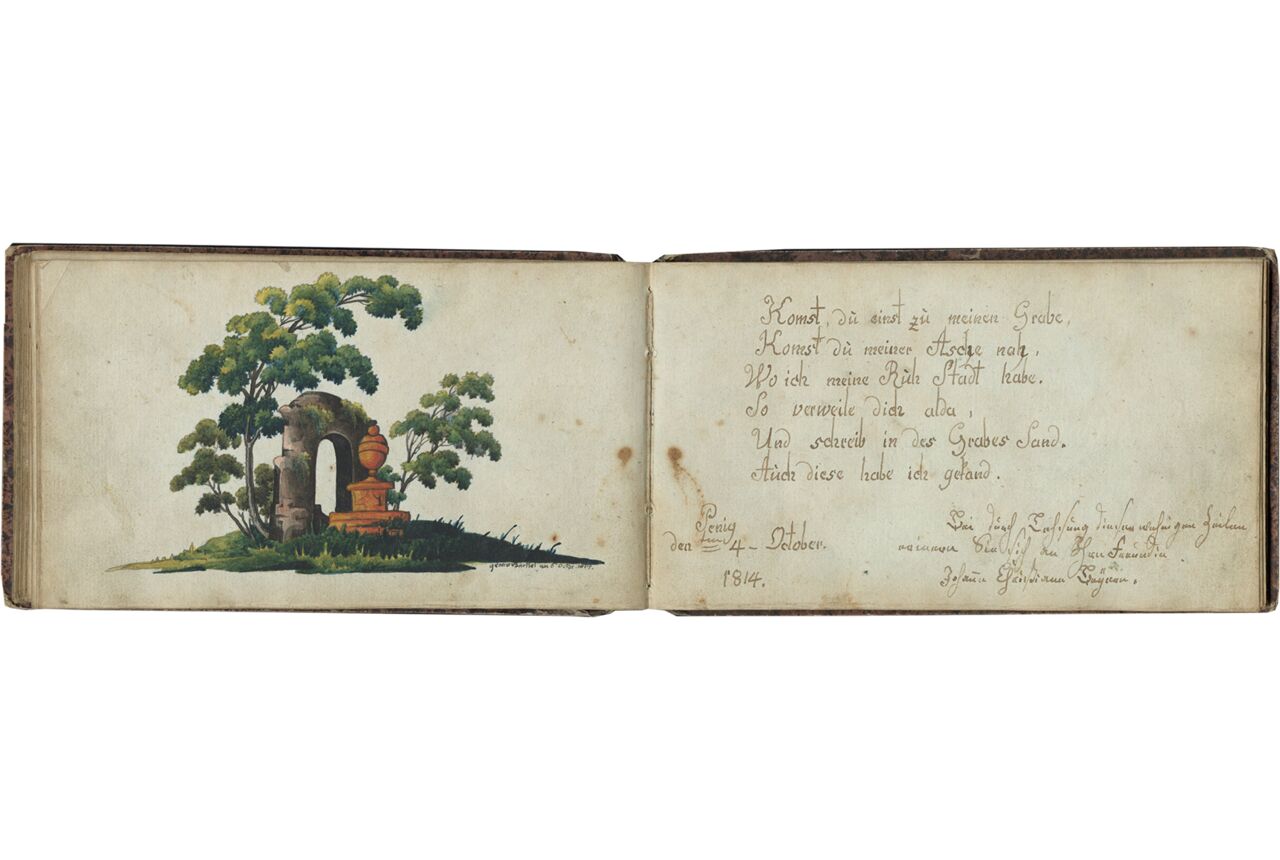 am 6 Octbr.
Komst, dù einst zù meinen Grabe,
Komst dù meiner Asche nah,
Wo ich meine Rùh Stadt habe.
So verweile dich alda,
Und schreib in des Grabes Sand.
Aùch diese habe ich gekand.
Penig
den 4 - October.
1814.
Bei dùrch Lesùng dieser wenigen Zeilen
erinern Sie sich an Ihre Freundin
Johana Christiana